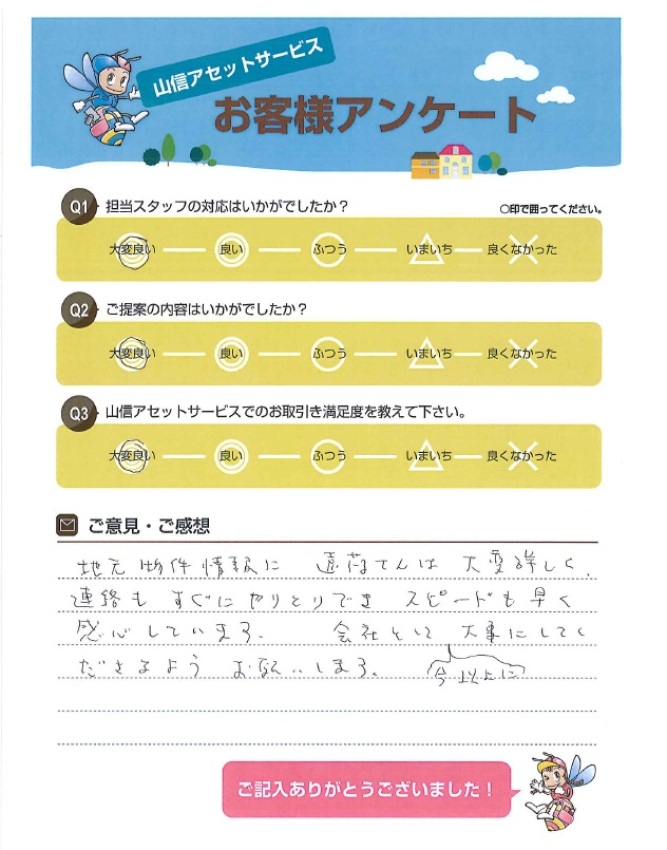 山信アセットサービス
お客様アンケート
Q1 担当スタッフの対応はいかがでしたか？
○印で囲ってください。
大変良い 良い ふつう いまいち 良くなかった
Q2 ご提案の内容はいかがでしたか？
大変良い 良い ふつう いまいち 良くなかった
Q3 山信アセットサービスでのお取引き満足度を教えて下さい。
大変良い 良い ふつう いまいち 良くなかった
ご意見・ご感想
地元 物件情報に さんは 大変詳しく、
連絡も すぐに やりとりでき スピードも早く
感心しています。 会社として 大事にしてく
ださるよう お願いします。 今以上に
ご記入ありがとうございました！